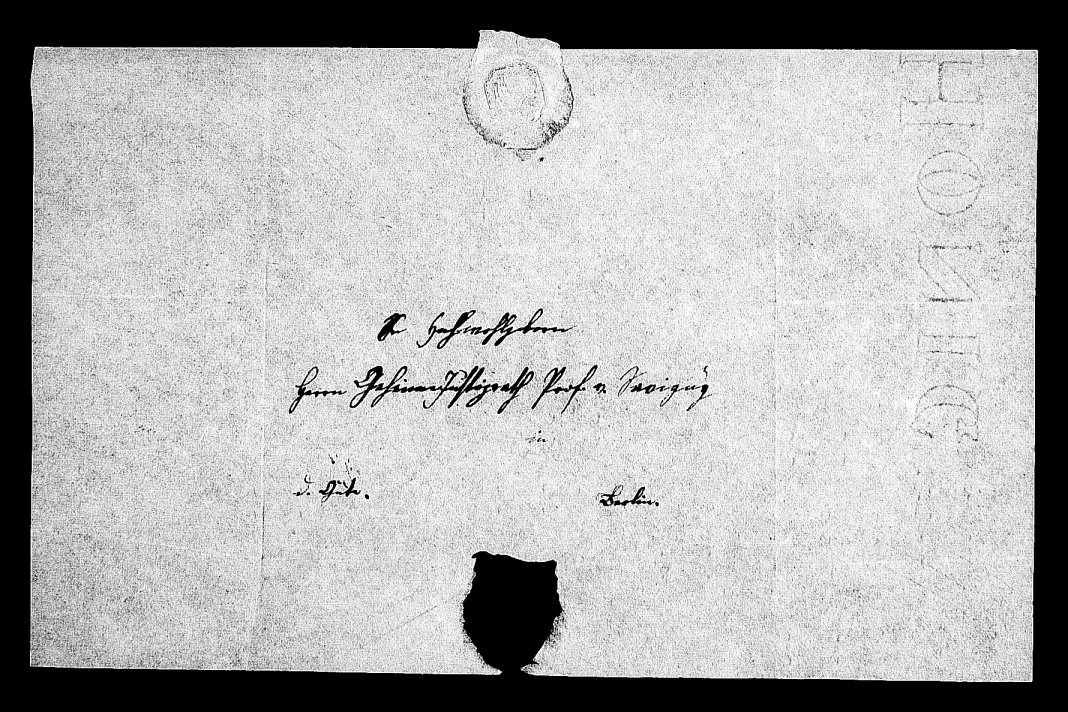 Sr Hochwohlgeboren
Herrn Geheime Justizrath Prof. v. Savigny
in
d. Güte. Berlin.
HONIG